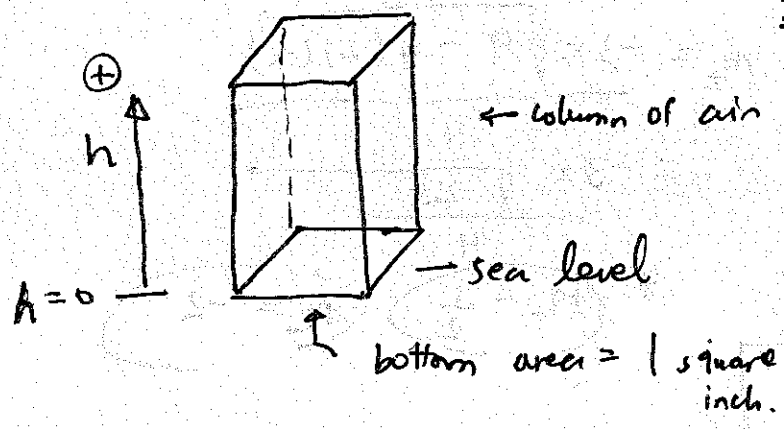 ⊕
← column of air
h
→ sea level
h = 0
bottom area = 1 square
inch.